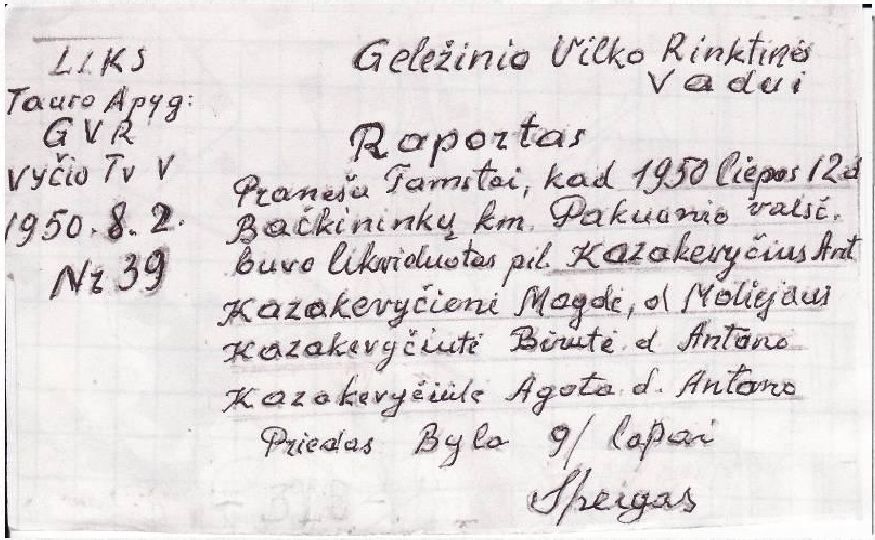 LLKS
Tauro Apyg:
GVR
Vyčio Tv V
1950.8.2.
Nr 39
Geležinio Vilko Rinktinės
Vadui
Raportas
Pranešu Tamstai, kad 1950 liepos 12 d
Bačkininkų km. Pakuonio valsč.
buvo likviduotas pil. Kazakevyčius Ant
Kazakevyčienė Magdė, d Motiejaus
Kazakevyčiutė Birutė d Antano
Kazakevyčiūte Agota d. Antano
Priedas Byla 9/ lapai
Speigas